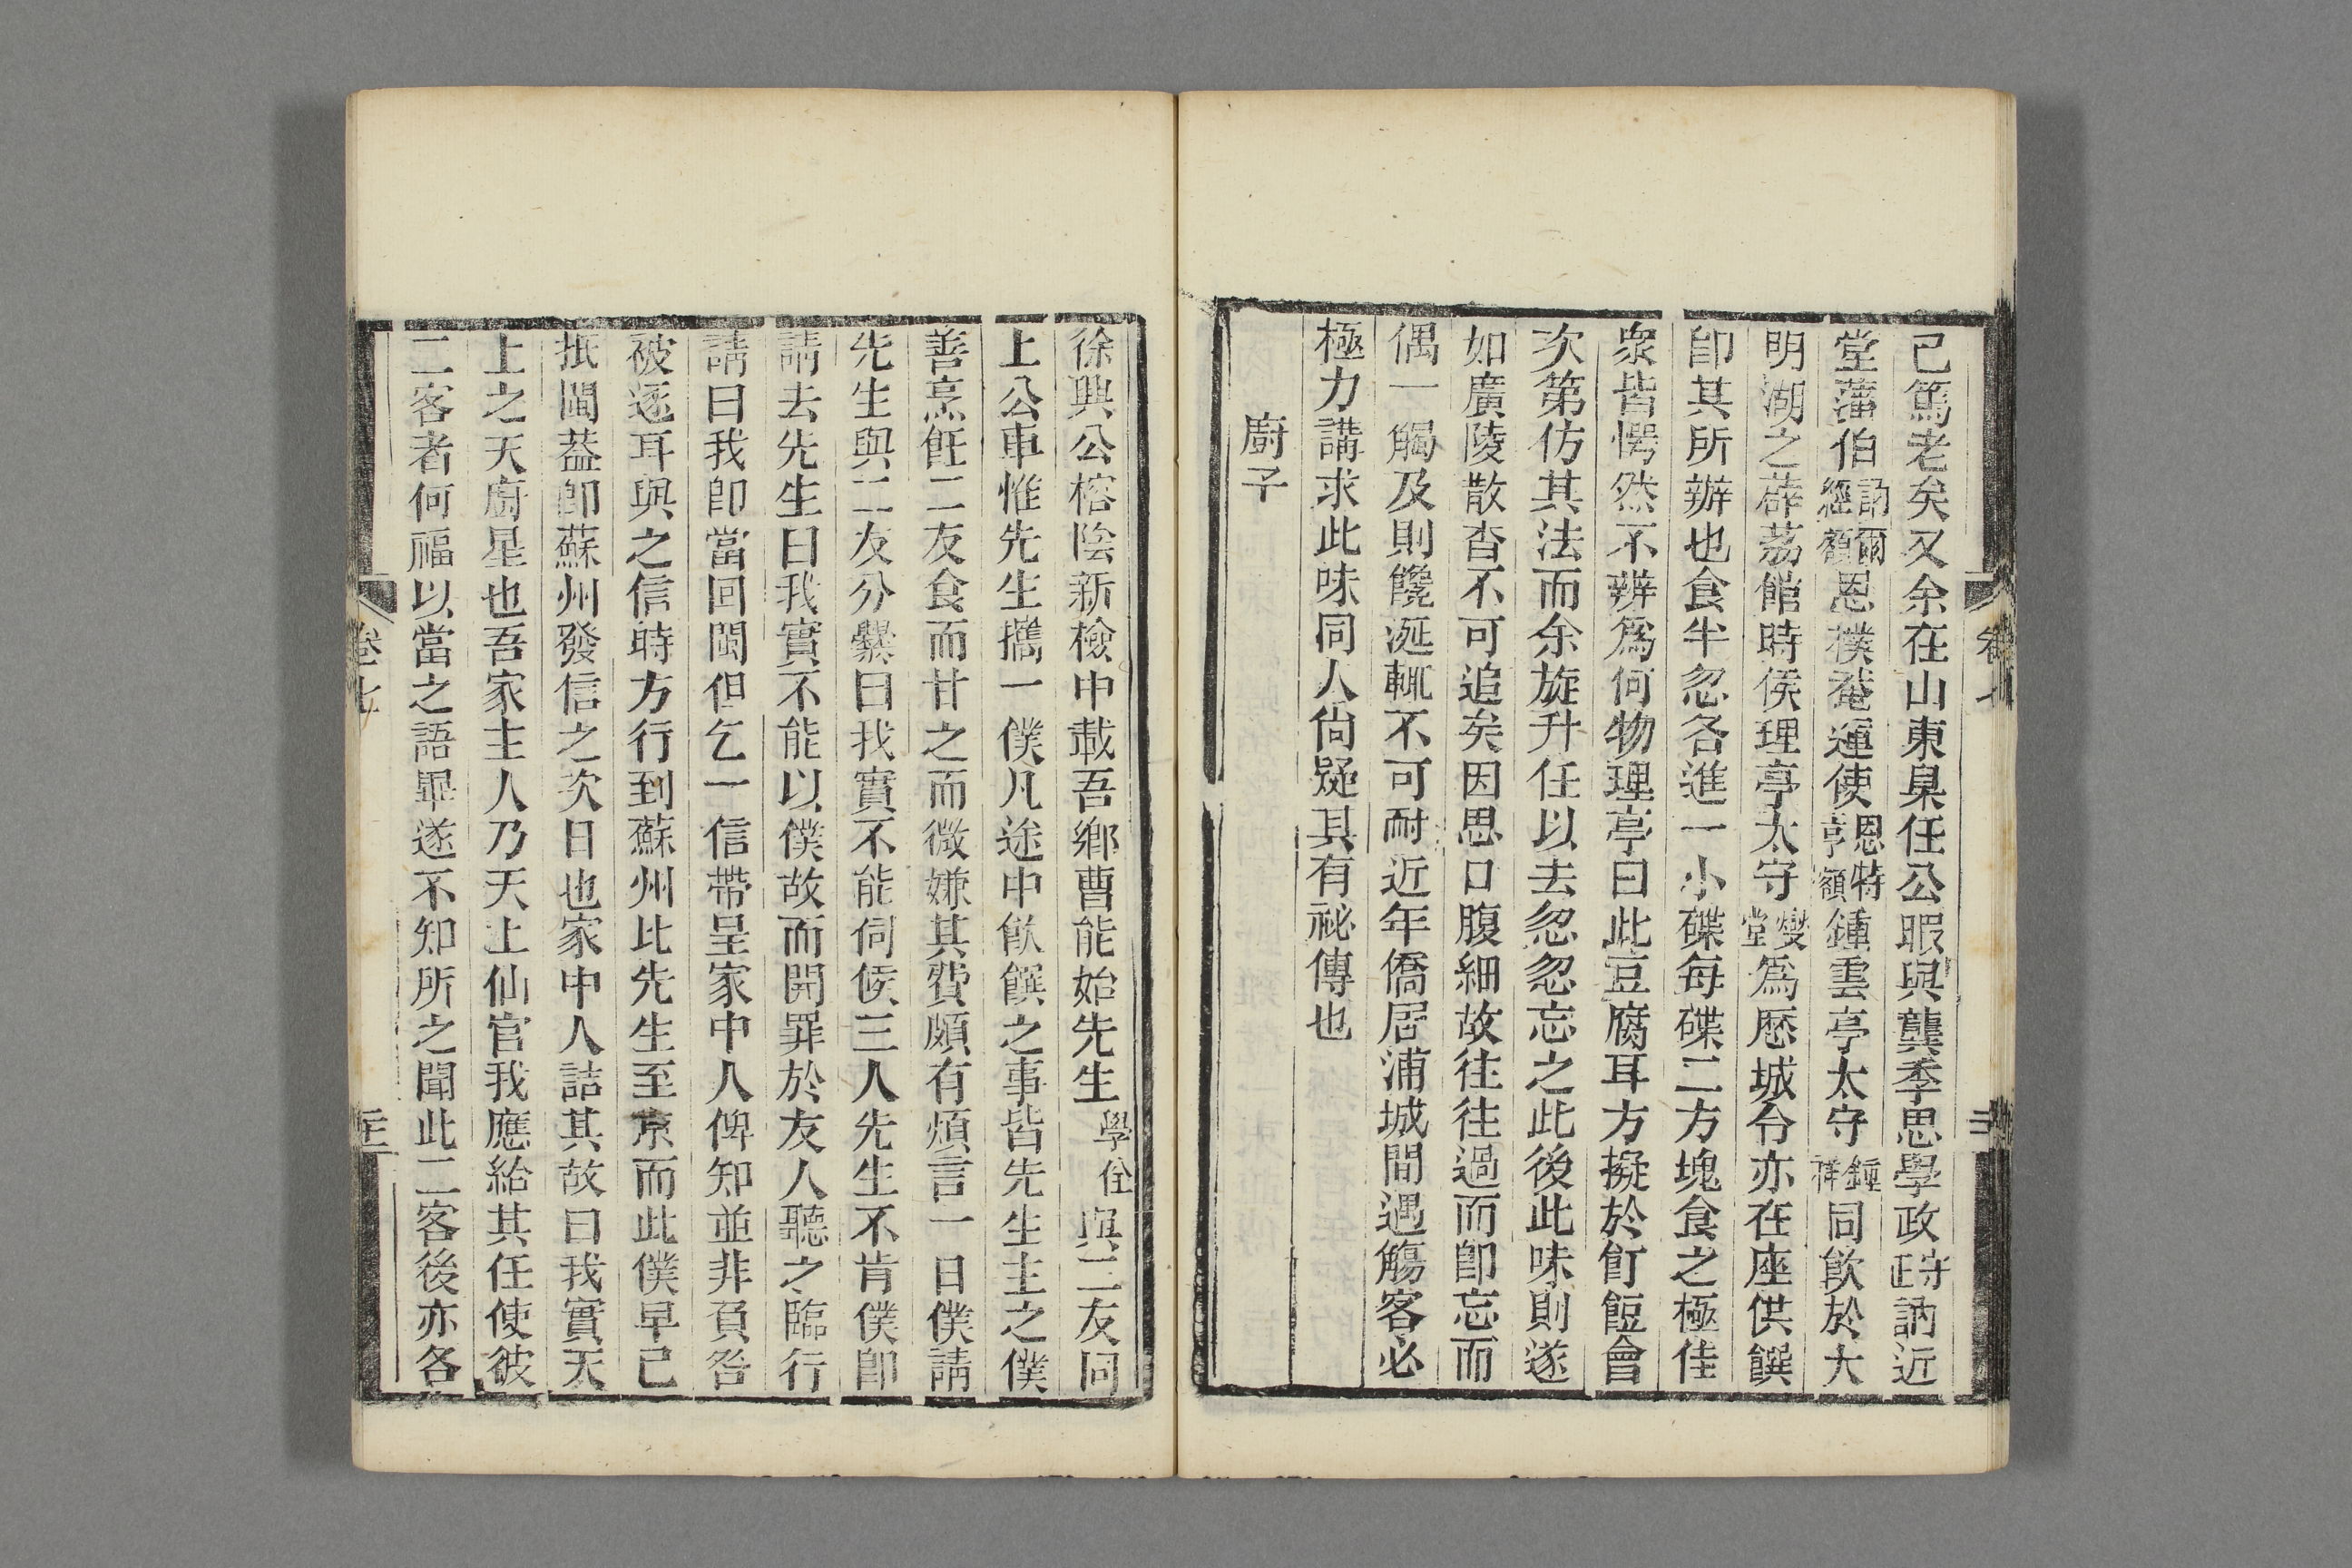 已篤老矣又余在山東臬任公暇與龔季思學政守正訥近
堂藩伯訥爾經額恩樸菴運使恩特亨額鍾雲亭太守鍾祥同飲於大
明湖之薜荔館時侯理亭太守燮堂爲厯城令亦在座供饌
卽其所辦也食半忽各進一小碟每碟二方塊食之極佳
衆皆愕然不辨爲何物理亭曰此豆腐耳方擬於飣餖會
次第仿其法而余旋升任以去忽忽忘之此後此味則遂
如廣陵散杳不可追矣因思口腹細故往往過而卽忘而
偶一觸及則饞涎輒不可耐近年僑居浦城間遇觴客必
極力講求此味同人尙疑其有祕傳也
廚子
徐興公榕陰新檢中載吾鄕曹能始先生學佺與二友同
上公車惟先生攜一僕凡途中飮饌之事皆先生主之僕
善烹飪二友食而甘之而微嫌其費頗有煩言一日僕請
先生與二友分爨曰我實不能伺候三人先生不肯僕卽
請去先生曰我實不能以僕故而開罪於友人聽之臨行
請曰我卽當回閩但乞一信帶呈家中人俾知並非負咎
被逐耳與之信時方行到蘇州比先生至京而此僕早已
抵閩葢卽蘇州發信之次日也家中人詰其故曰我實天
上之天廚星也吾家主人乃天上仙官我應給其任使彼
二客者何福以當之語畢遂不知所之聞此二客後亦各
卷七